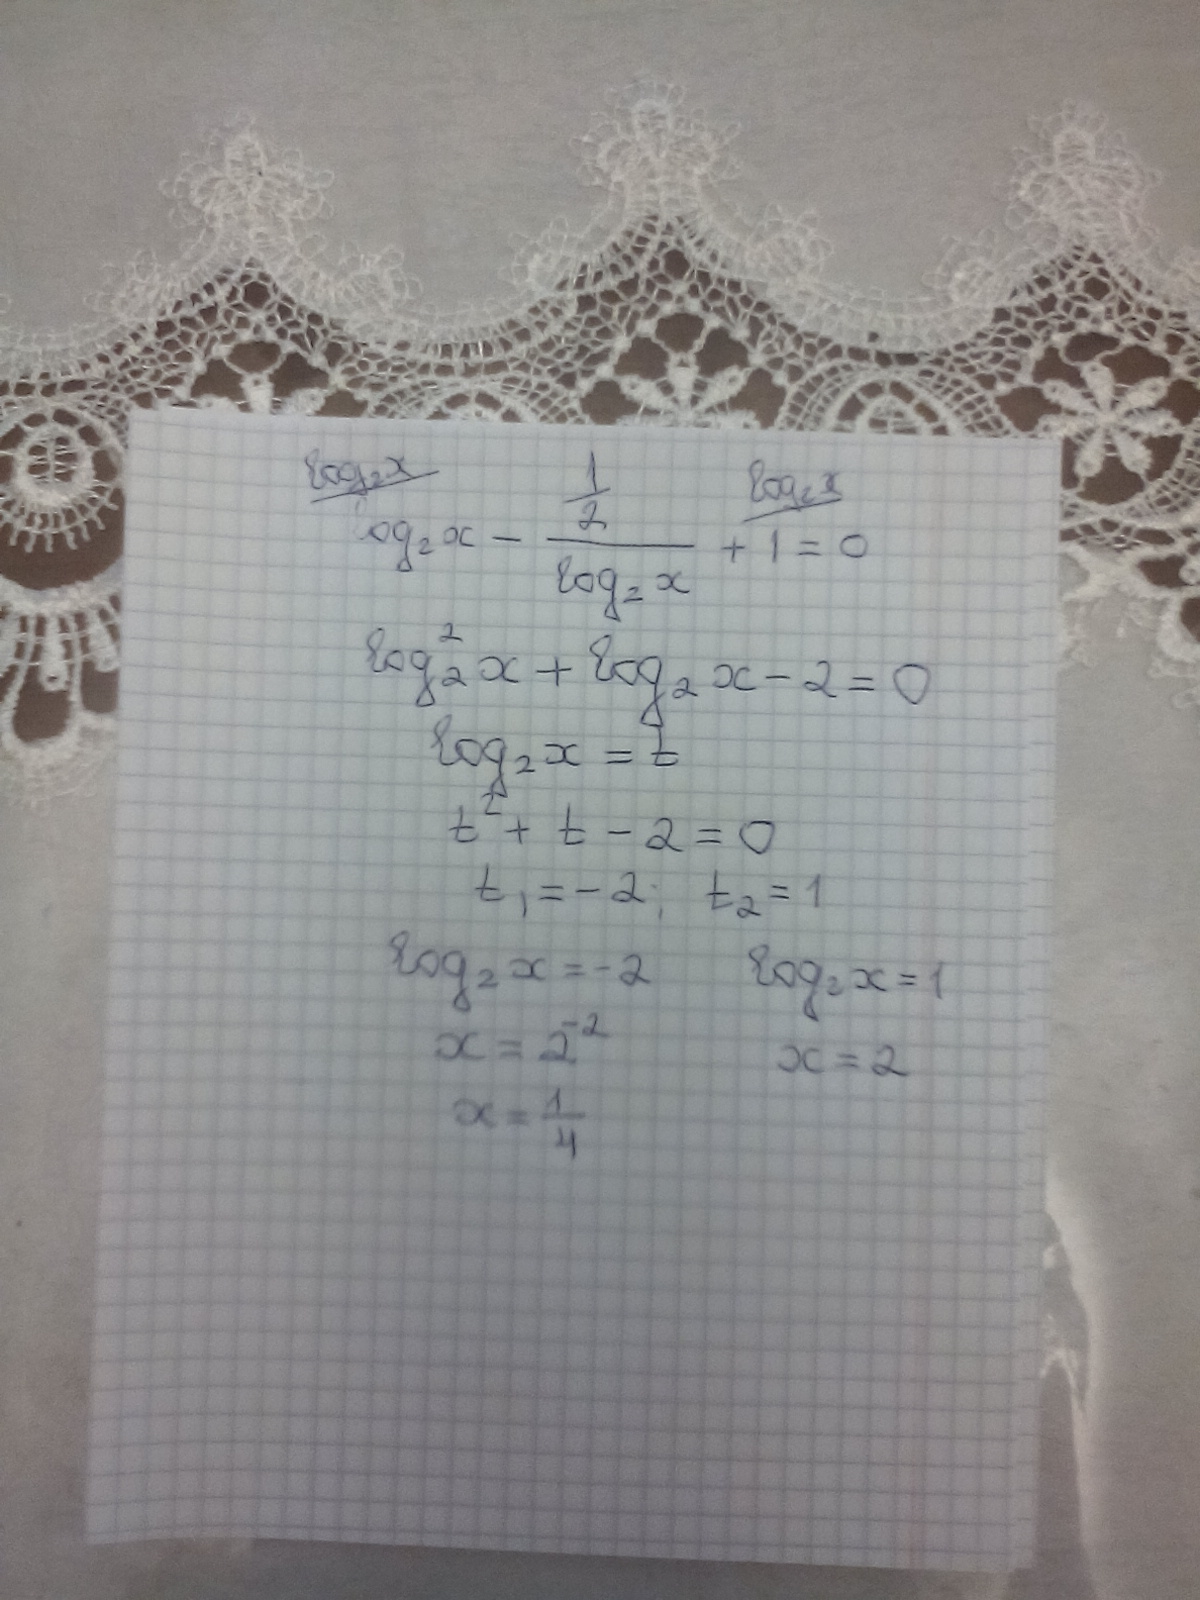 log₂x 1/2 log₂x
log₂x − ――― + 1 = 0
log₂x
log₂²x + log₂x − 2 = 0
log₂x = t
t² + t − 2 = 0
t₁ = −2; t₂ = 1
log₂x = −2 log₂x = 1
x = 2⁻² x = 2
x = 1/4